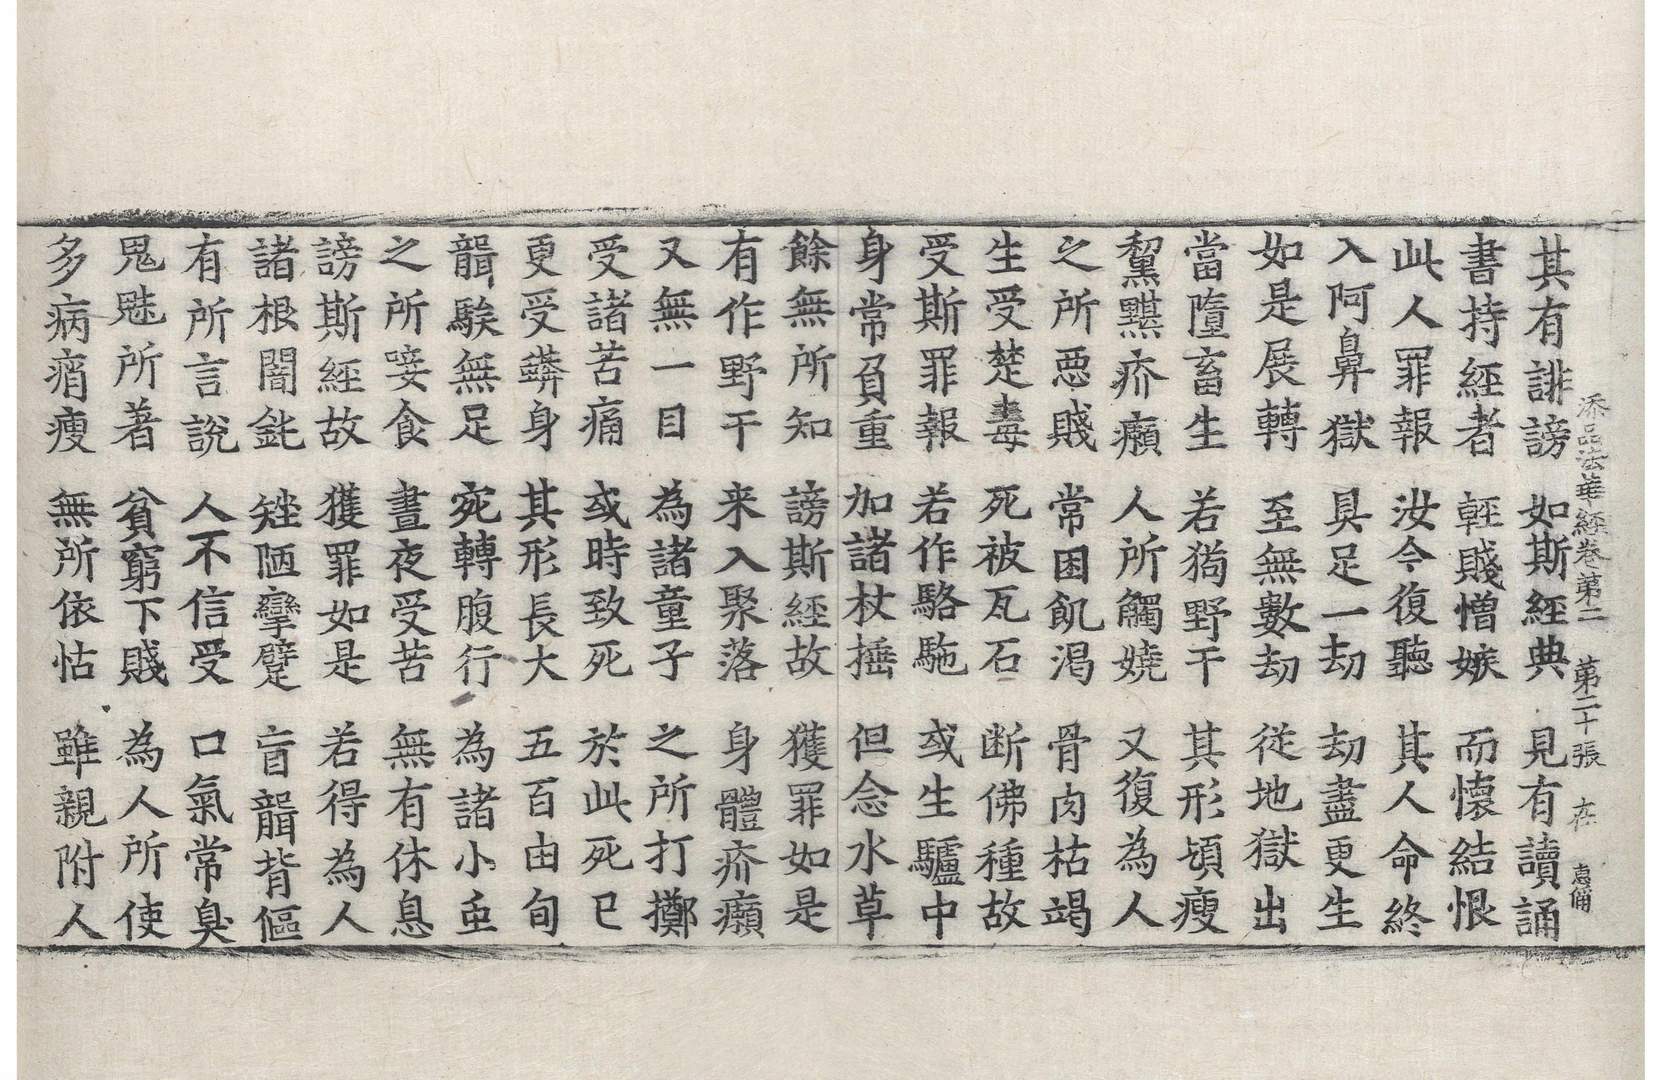 添品法華經卷第二 第二十張 在 惠俑
其有誹謗 如斯經典 見有讀誦
書持經者 輕賤憎嫉 而懷結恨
此人罪報 汝今復聽 其人命終
入阿鼻獄 具足一劫 劫盡更生
如是展轉 至無數劫 從地獄出
當墮畜生 若狗野干 其形頓瘦
黧黮疥癩 人所觸嬈 又復為人
之所惡賤 常困飢渴 骨肉枯竭
生受楚毒 死被瓦石 断佛種故
受斯罪報 若作駱駞 或生驢中
身常負重 加諸杖捶 但念水草
餘無所知 謗斯經故 獲罪如是
有作野干 来入聚落 身體疥癩
又無一目 為諸童子 之所打擲
受諸苦痛 或時致死 於此死已
更受蟒身 其形長大 五百由旬
聾騃無足 宛轉腹行 為諸小虫
之所唼食 晝夜受苦 無有休息
謗斯經故 獲罪如是 若得為人
諸根闇鈍 矬陋攣躄 盲聾背傴
有所言說 人不信受 口氣常臭
鬼魅所著 貧窮下賤 為人所使
多病痟瘦 無所依怙 雖親附人